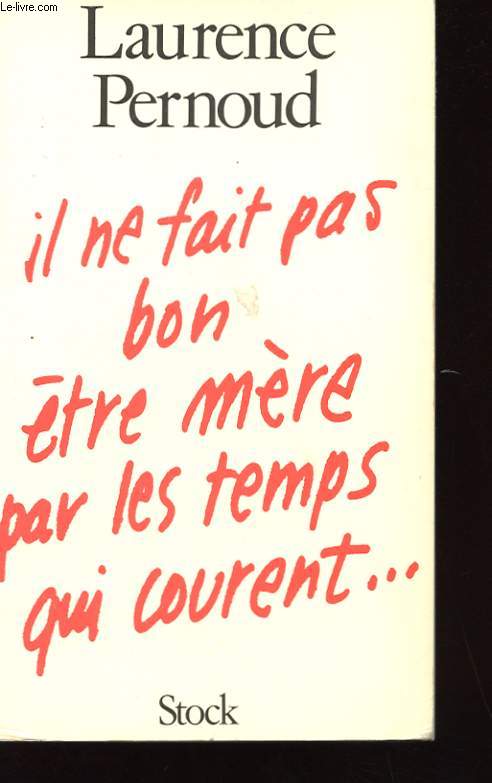 Le-livre.com
Laurence
Pernoud
il ne fait pas
bon
être mère
par les temps
qui courent...
Stock